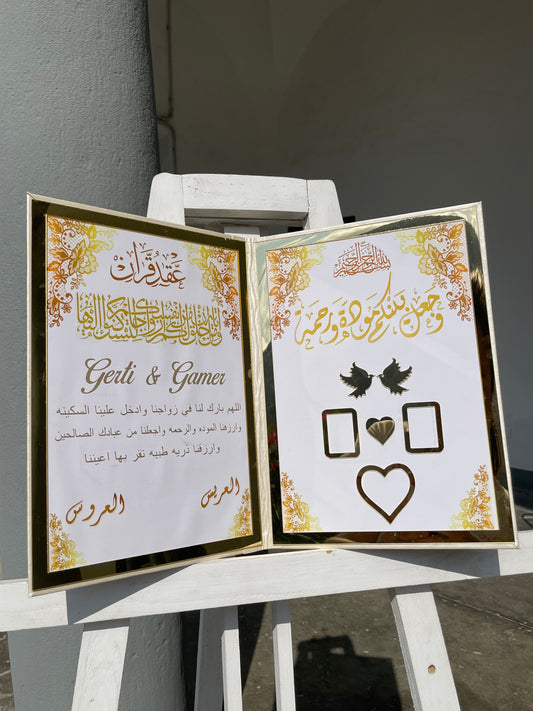 عقد قران
Gerti & Gamer
اللهم بارك لنا في زواجنا وادخل علينا السكينه
وارزقنا الموده والرحمه واجعلنا من عبادك الصالحين
وارزقنا ذريه طيبه تقر بها اعيننا
العريس
العروس
بسم الله الرحمن الرحيم
وجعل بينكم مودة ورحمة